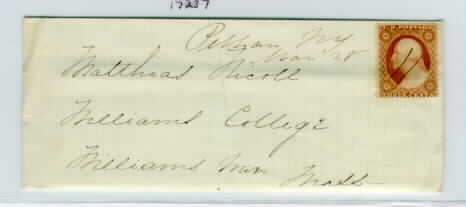 17237
NY
Nov 28
U.S. POSTAGE
THREE CENTS
Matthias Nicoll
Williams College
Williams Town Mass